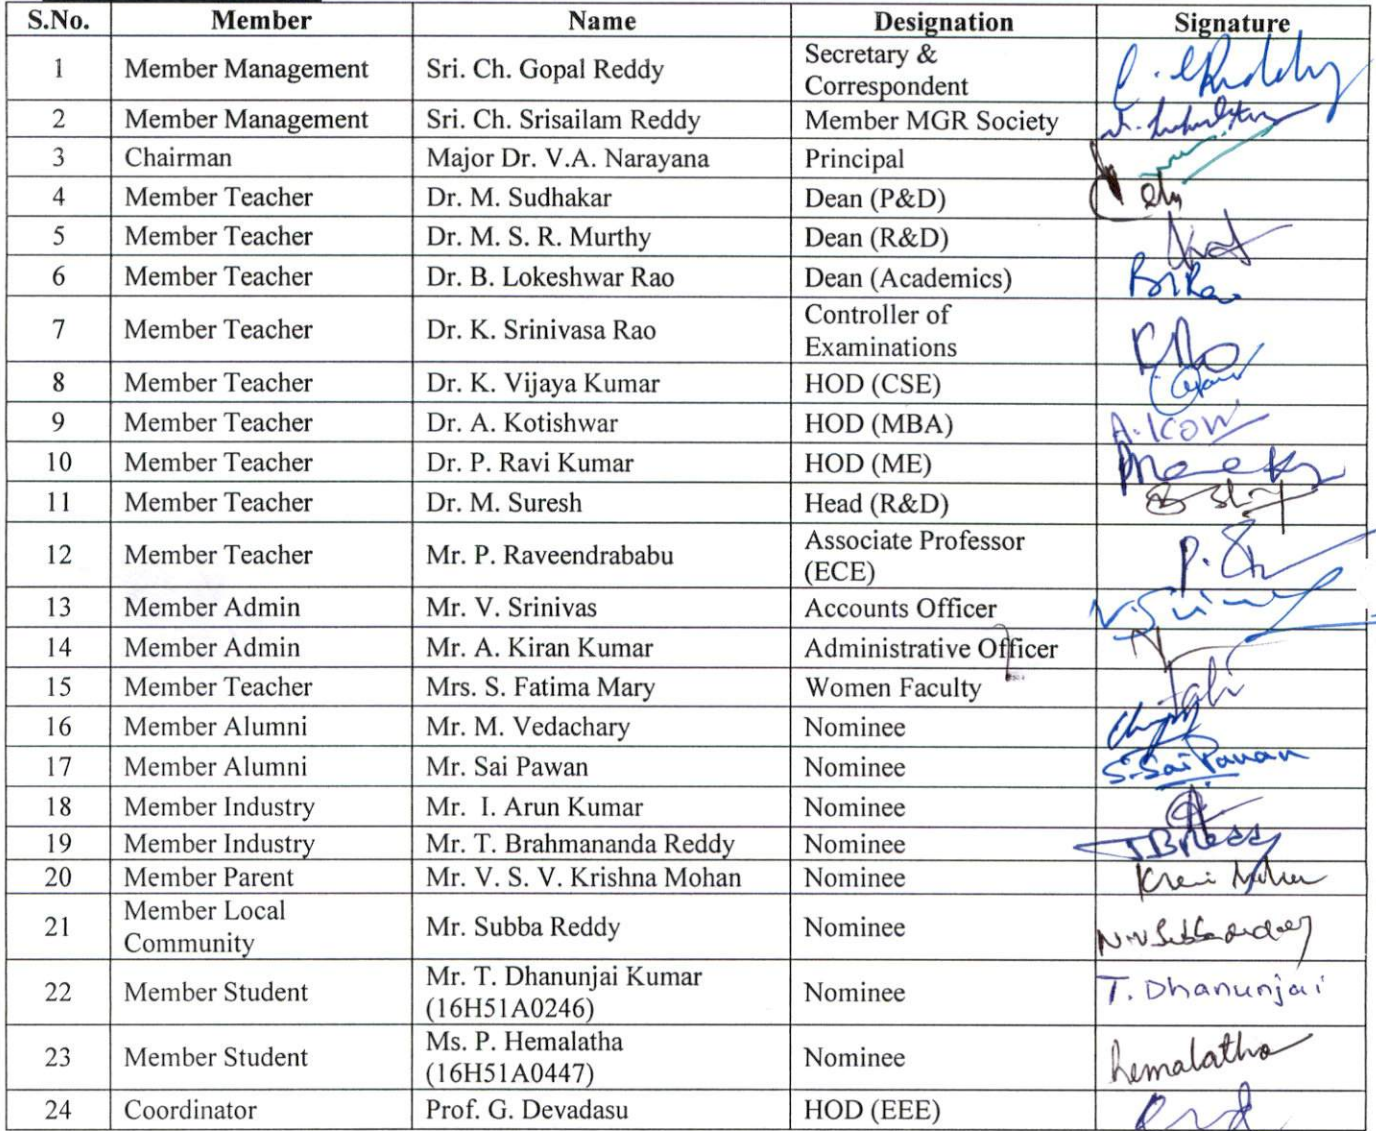 S.No. Member Name Designation Signature
1 Member Management Sri. Ch. Gopal Reddy Secretary &
Correspondent
2 Member Management Sri. Ch. Srisailam Reddy Member MGR Society
3 Chairman Major Dr. V.A. Narayana Principal
4 Member Teacher Dr. M. Sudhakar Dean (P&D)
5 Member Teacher Dr. M. S. R. Murthy Dean (R&D)
6 Member Teacher Dr. B. Lokeshwar Rao Dean (Academics)
7 Member Teacher Dr. K. Srinivasa Rao Controller of
Examinations
8 Member Teacher Dr. K. Vijaya Kumar HOD (CSE)
9 Member Teacher Dr. A. Kotishwar HOD (MBA)
10 Member Teacher Dr. P. Ravi Kumar HOD (ME)
11 Member Teacher Dr. M. Suresh Head (R&D)
12 Member Teacher Mr. P. Raveendrababu Associate Professor
(ECE)
13 Member Admin Mr. V. Srinivas Accounts Officer
14 Member Admin Mr. A. Kiran Kumar Administrative Officer
15 Member Teacher Mrs. S. Fatima Mary Women Faculty
16 Member Alumni Mr. M. Vedachary Nominee
17 Member Alumni Mr. Sai Pawan Nominee S.Sai Pavan
18 Member Industry Mr. I. Arun Kumar Nominee
19 Member Industry Mr. T. Brahmananda Reddy Nominee
20 Member Parent Mr. V. S. V. Krishna Mohan Nominee
21 Member Local
Community Mr. Subba Reddy Nominee
22 Member Student Mr. T. Dhanunjai Kumar
(16H51A0246) Nominee T. Dhanunjai
23 Member Student Ms. P. Hemalatha
(16H51A0447) Nominee hemalatha
24 Coordinator Prof. G. Devadasu HOD (EEE)